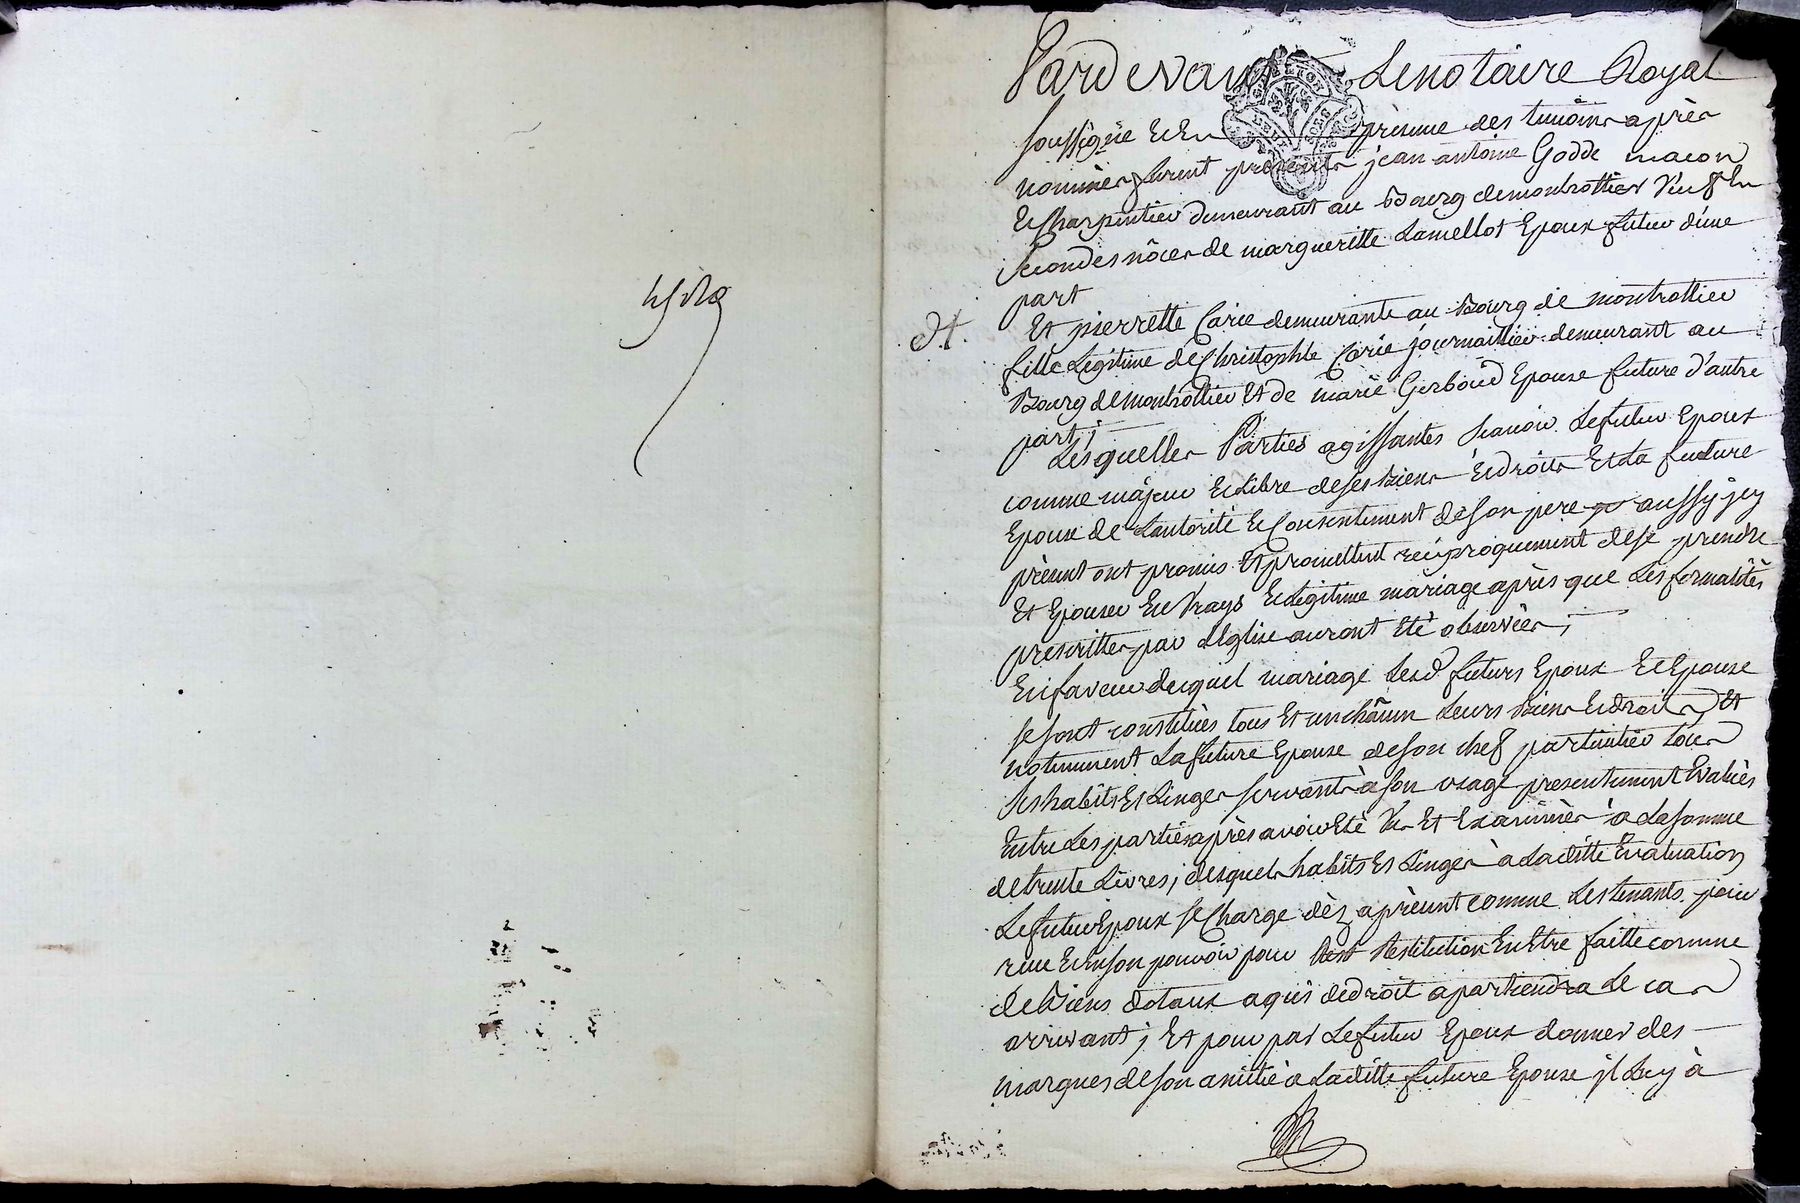 Pardevant Le notaire Royal
soussigné Et En présence des temoins après
nommés furent présents jean antoine Godde macon
Et Charpentier demeurant au Bourg de montrottier veuf En
secondes nôces de margueritte Lamellot Epoux futur d'une
part
Et pierrette Carie demeurante au Bourg de montrottier
fille Légitime de Christophle Carie journaillier demeurant au
Bourg de montrottier Et de marie Gerboud Epouse future d'autre
part ;
Lesquelles Parties agissantes scavoir Le futur Epoux
comme májeur Et Libre de ses Biens Et droits Et La future
Epouse de L'autorité Et Consentement de son pere aussy jcy
présent ont promis Et promettent reciproquement de se prendre
Et Epouser En Vrays Et Légitime mariage après que Les formalités
prescrittes par L'Eglise auront Eté observées ;
En faveur duquel mariage Lesd futurs Epoux Et Epouse
se sont constitués tous Et un châcun Leurs Biens Et droits Et
notamment La future Epouse de son chef particulier tous
ses habits Et Linges servants à son usage presentement Evalués
Entre Les parties après avoir Eté Vus Et Examinés à La somme
de trente Livres ; desquels habits Et Linges à Laditte Evaluation
Le futur Epoux se Charge dèz aprésent comme Les tenants pour
reçus En son pouvoir pour Restitution En Etre faitte comme
de Biens dotaux a qui de droit apartiendra Le cas
arrivant ; Et pour par Le futur Epoux donner des
marques de son amitié a Laditte future Epouse jl Luy à